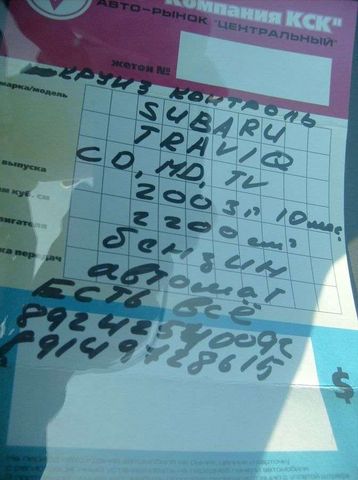 Компания КСК"
АВТО-РЫНОК "ЦЕНТРАЛЬНЫЙ"
жетон №
КРУИЗ КОНТРОЛЬ
марка/модель
SUBARU
TRAVIQ
CD, MD, TV
выпуска
2003г. 10мес.
м куб. см
2200 см³
вигателя
бензин
ка передач
автомат
ЕСТЬ ВСЁ
89242540092
89149728615
$